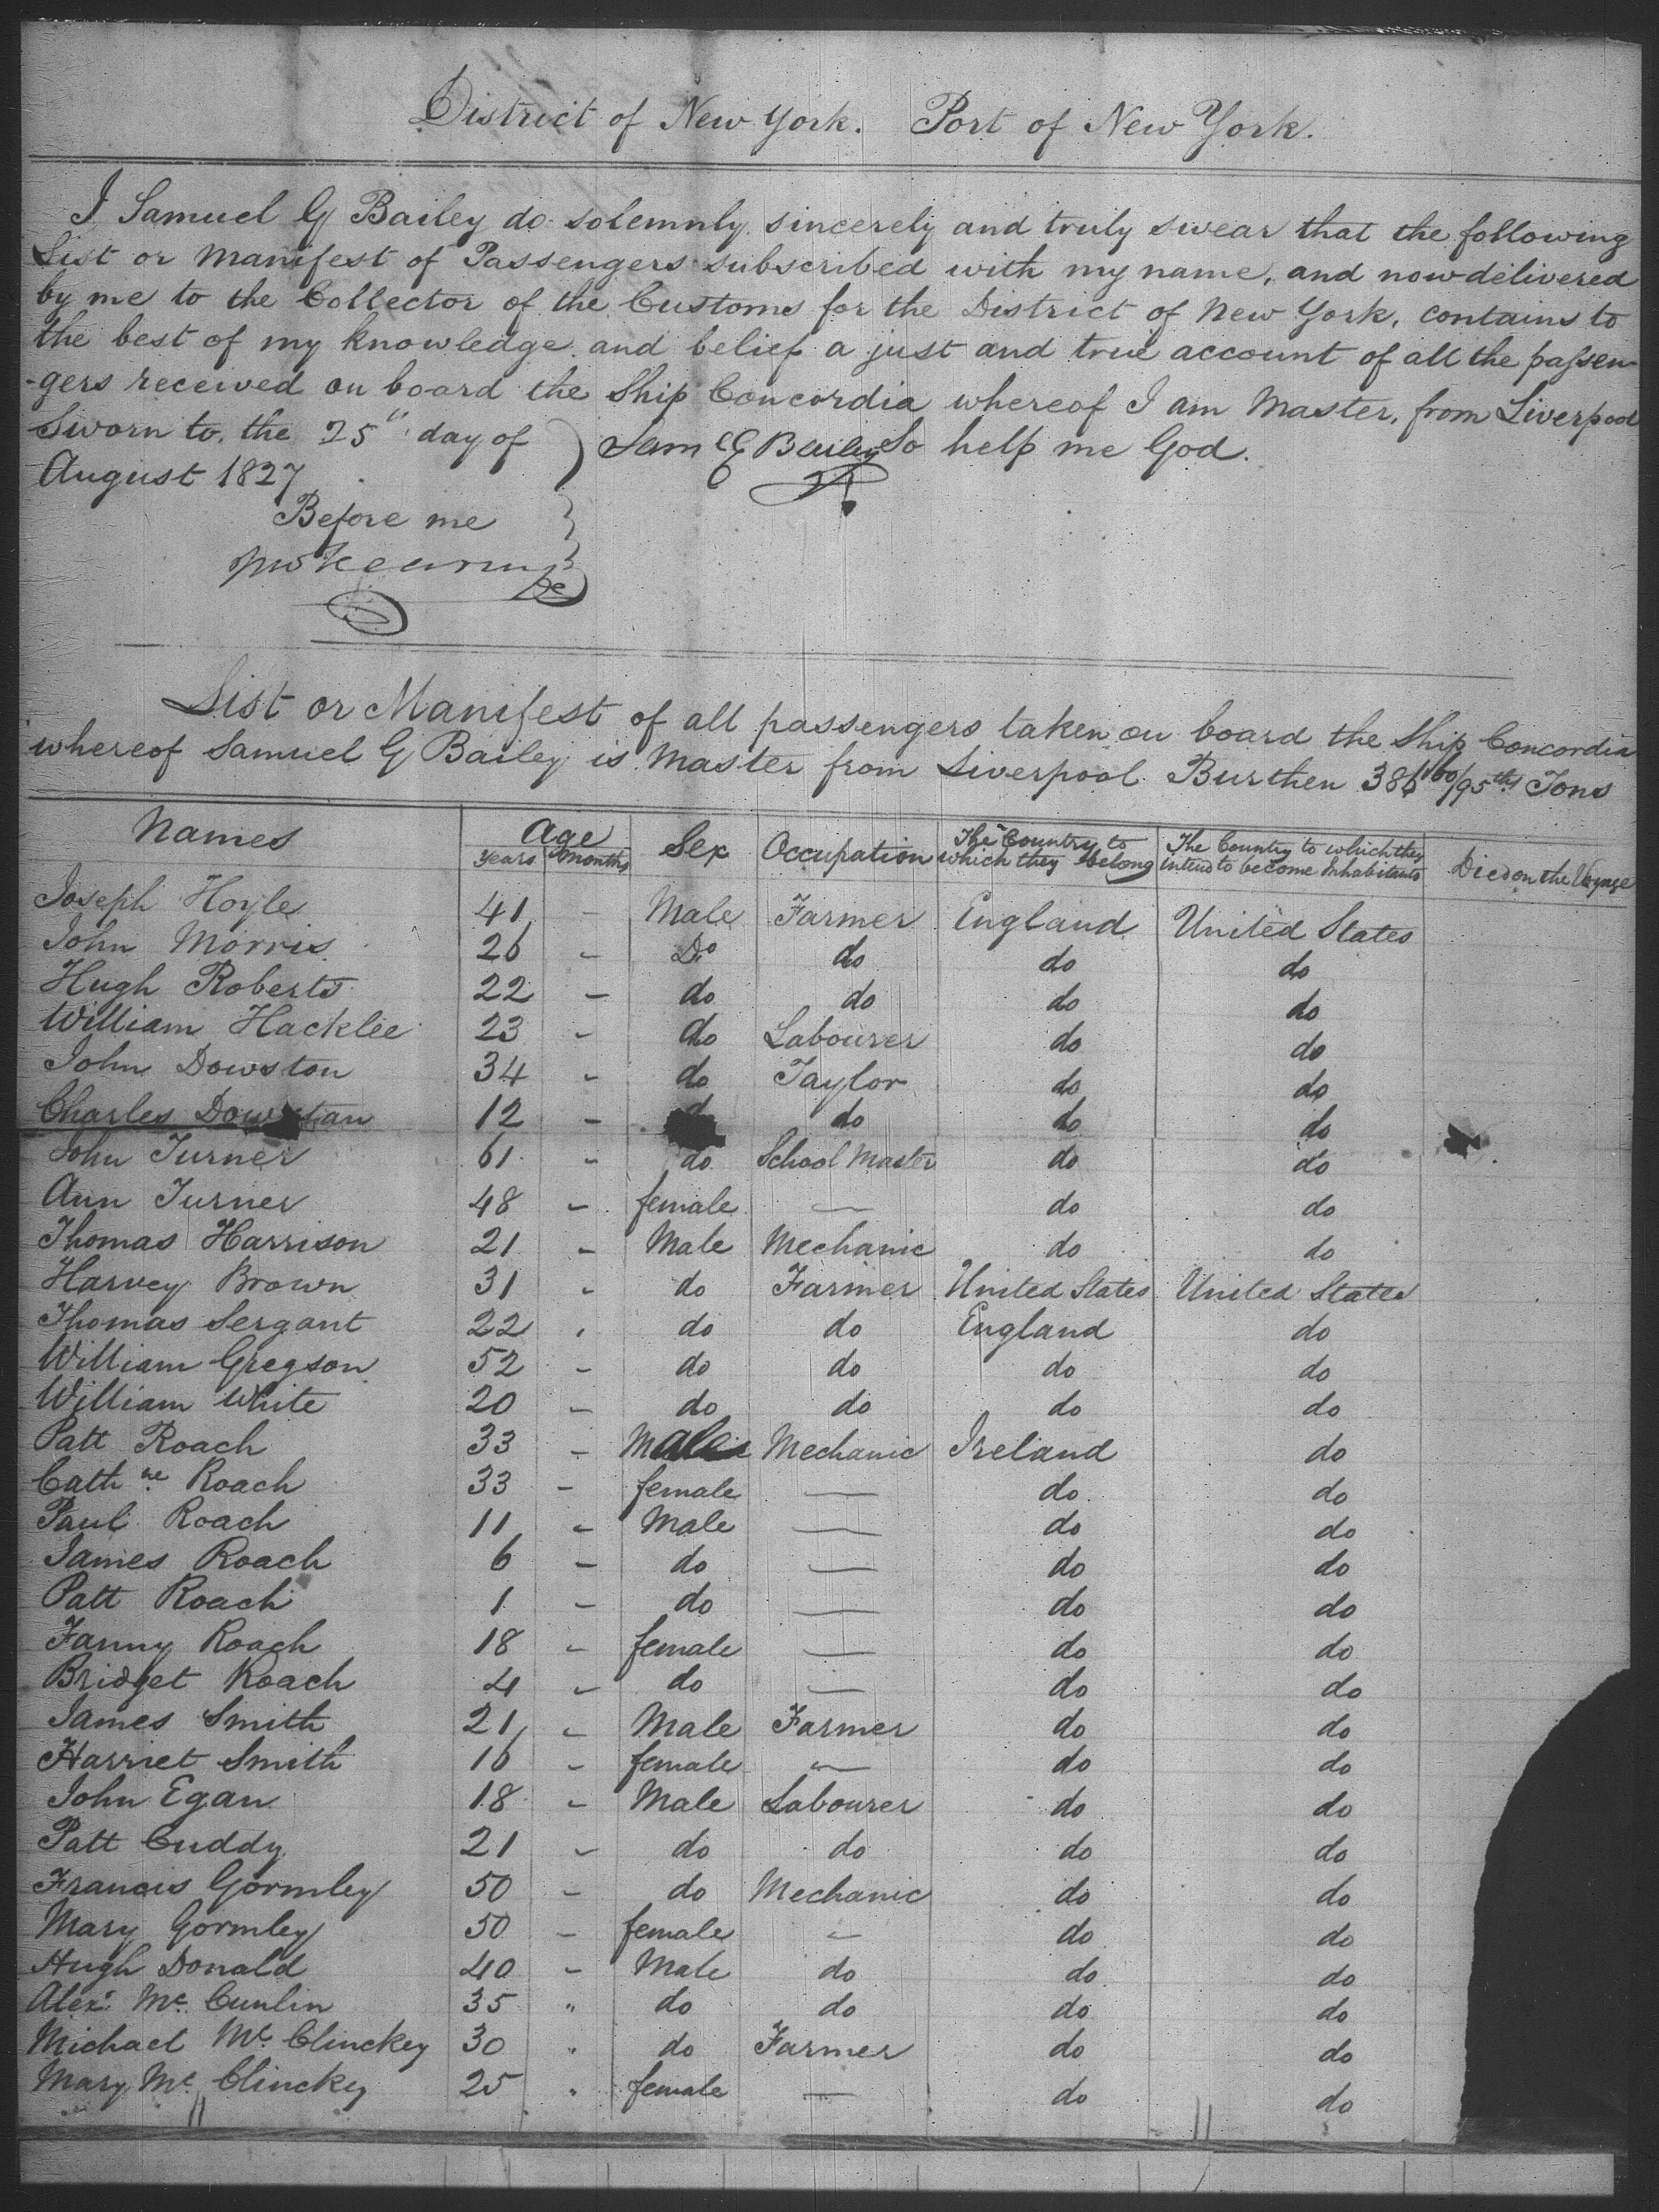 District of New York. Port of New York.
I Samuel G Bailey do solemnly sincerely and truly swear that the following
List or Manifest of Passengers subscribed with my name, and now delivered
by me to the Collector of the Customs for the District of New York, contains to
the best of my knowledge and belief a just and true account of all the passen-
-gers received on board the Ship Concordia whereof I am Master, from Liverpool
Sworn to, the 25" day of ) Saml G Bailey So help me God.
August 1827
Before me
List or Manifest of all passengers taken on board the Ship Concordia
whereof Samuel G Bailey is Master from Liverpool Burthen 386 60/95ths Tons
Names Age Years Months Sex Occupation The Country to which they belong The Country to which they intend to become Inhabitants Died on the Voyage
Joseph Hoyle 41 - Male Farmer England United States
John Morris 26 - Do do do do
Hugh Roberts 22 - do do do do
William Hacklee 23 - do Labourer do do
John Dowston 34 - do Taylor do do
Charles Dowstan 12 - do do do
John Turner 61 - do School Master do do
Ann Turner 48 - female — do do
Thomas Harrison 21 - Male Mechanic do do
Harvey Brown 31 - do Farmer United States United States
Thomas Sergant 22 - do do England do
William Gregson 52 - do do do do
William White 20 - do do do do
Patt Roach 33 - Male Mechanic Ireland do
Cathne Roach 33 - female — do do
Paul Roach 11 - Male — do do
James Roach 6 - do — do do
Patt Roach 1 - do — do do
Fanny Roach 18 - female — do do
Bridget Roach 4 - do — do do
James Smith 21 - Male Farmer do do
Harriet Smith 16 - female — do do
John Egan 18 - Male Labourer do do
Patt Cuddy 21 - do do do do
Francis Gormley 50 - do Mechanic do do
Mary Gormley 50 - female — do do
Hugh Donald 40 - Male do do do
Alexr Mc Cunlin 35 " do do do do
Michael Mc Clinckey 30 " do Farmer do do
Mary Mc Clinckey 25 " female — do do